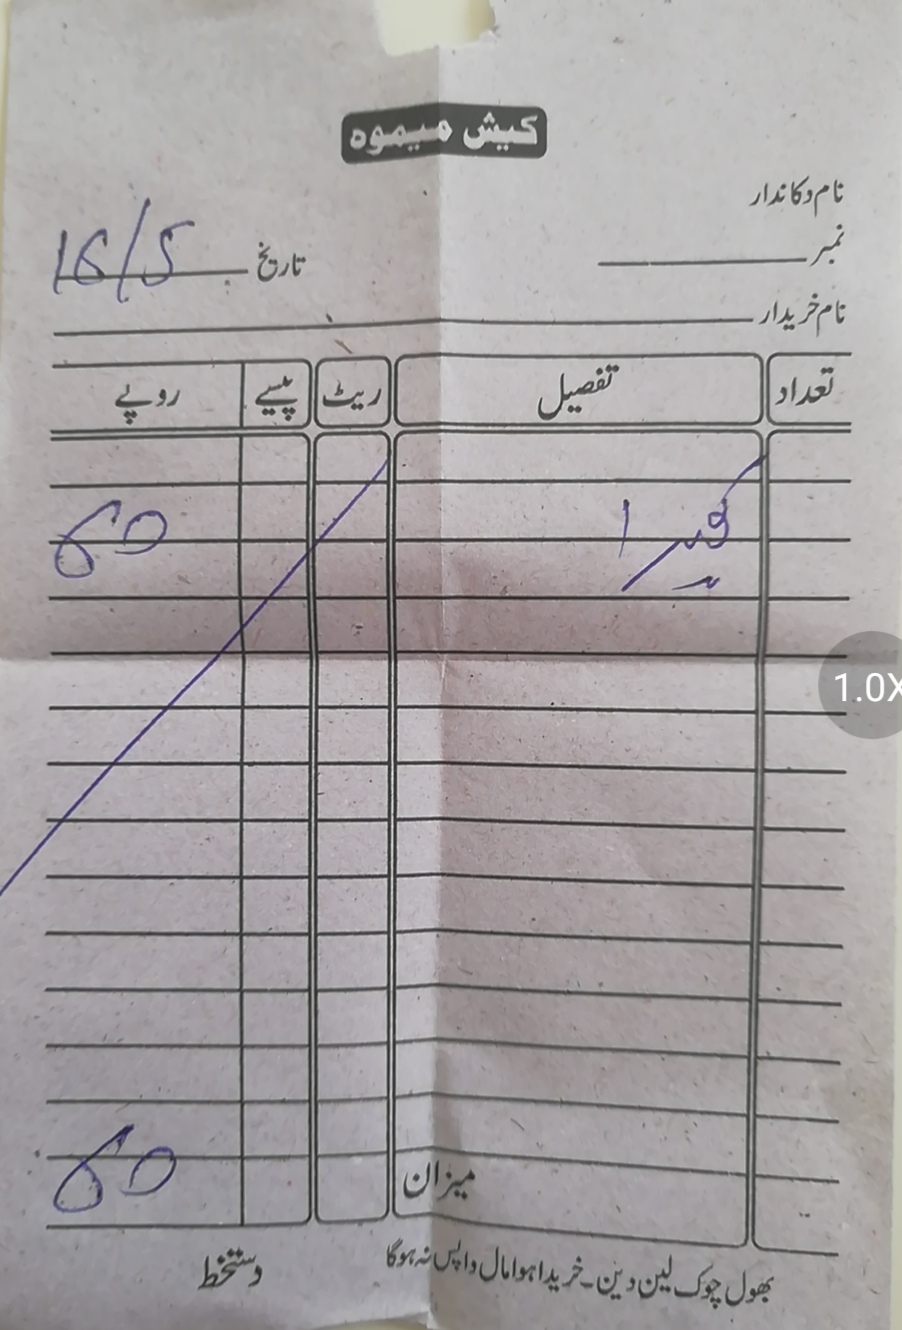 کیش میمو
نام دکاندار
نمبر
تاریخ 16/5
نام خریدار
تعداد تفصیل ریٹ پیسے روپے
1 60
میزان 60
بھول چوک لین دین۔ خریدا ہوا مال واپس نہ ہوگا
دستخط
1.0X